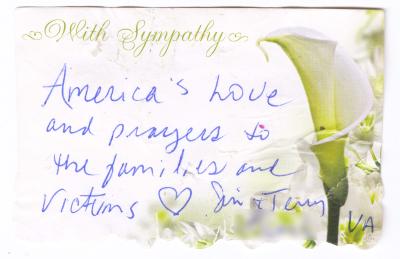 With Sympathy
America's Love
and prayers to
the families and
Victims ♡ & Terry
VA